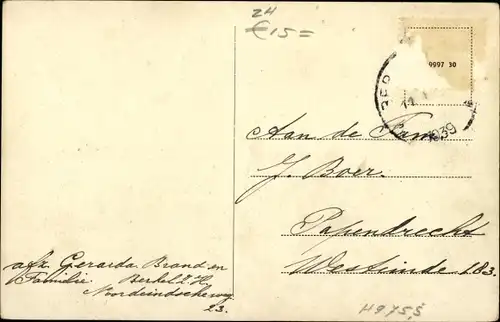 24
€15=
9997 30
1939
Aan de Fam
J. Boer.
Papendrecht
Westeinde 183.
afz. Gerarda Brand en
Familie Berkel Z.H.
Noordeindscheweg
23.
H975,5